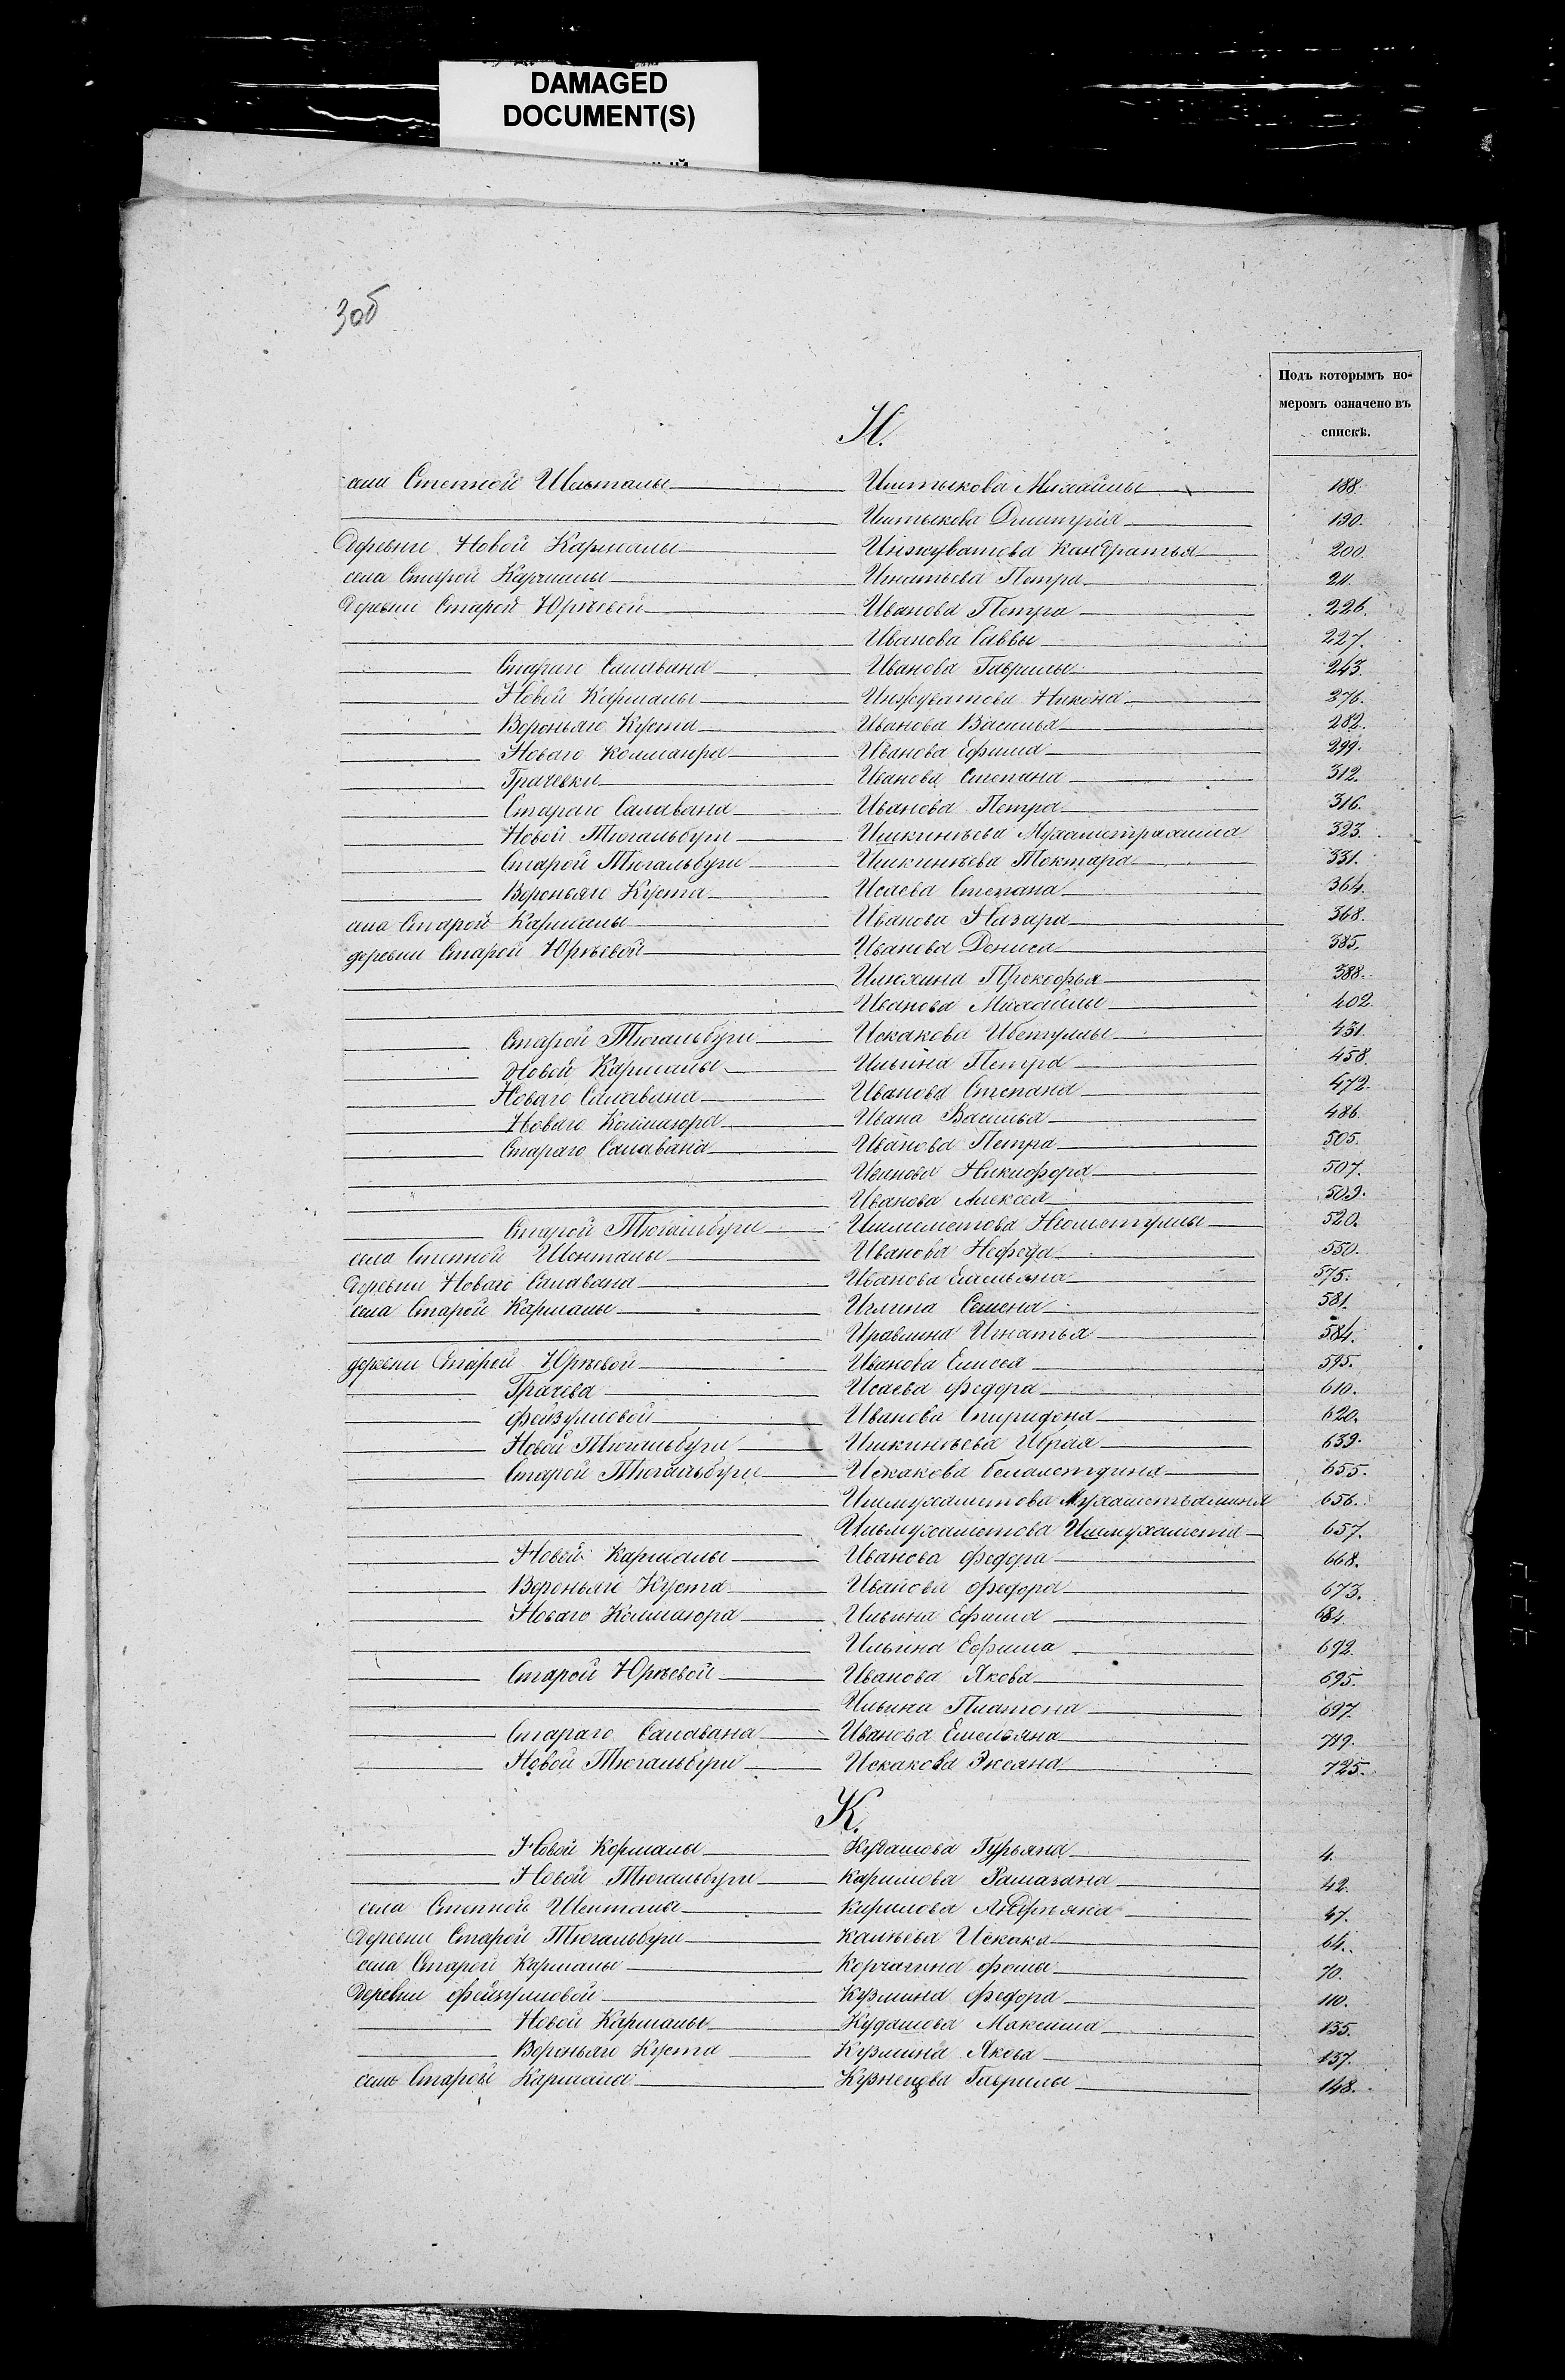 DAMAGED
DOCUMENT(S)
3об
Подъ которымъ но-
меромъ означено въ
спискѣ.
И.
села Степной Шенталы Иштыкова Михайлы 188.
Иштыкова Дмитрія 190.
Деревни Новой Кармалы Инжуватова Кандратья 200.
села Старой Кармалы Игнатьева Петра 211.
Деревни Старой Юрѣевой Иванова Петра 226.
Иванова Саввы 227.
Стараго Салавана Иванова Гаврилы 243.
Новой Кармалы Инжуватова Никона 276.
Вороньяго Куста Иванова Василья 282.
Новаго Колмаюра Иванова Ефима 299.
Грачевки Иванова Степана 312.
Стараго Салавана Иванова Петра 316.
Новой Тюгальбуги Ишкинѣева Мухаметрахима 323.
Старой Тюгальбуги Ишкинѣева Токтара 331.
Вороньяго Куста Исаева Степана 364.
села Старой Кармалы Иванова Назара 368.
деревни Старой Юрѣевой Иванова Дениса 385.
Илюхина Прокофья 388.
Иванова Михайлы 402.
Старой Тюгальбуги Искакова 431
Новой Кармалы Ильина Петра 458.
Новаго Салавана Иванова Степана 472.
Новаго Колмаюра Ивана Василья 486.
Стараго Салавана Иванова Петра 505.
Иванова Никифора 507.
Иванова Алексея 509.
Старой Тюгальбуги Ишмаметова 520.
села Степной Шенталы Иванова Нефеда 550.
Деревни Новаго Салавана Иванова Емельяна 575.
села Старой Кармалы Иглина Семена 581.
Игнатья 584.
деревни Старой Юрѣевой Иванова Елисея 595.
Грачева Исаева Федора 610.
Фейзуловой Иванова Спиридона 620.
Новой Тюгальбуги Ишкинѣева Ибрая 639.
Старой Тюгальбуги Искакова Гелалетдина 655.
Ишмухаметова Мухаметъамина 656.
Ильмухаметова Ишмухамета 657.
Новой Кармалы Иванова Федора 668.
Вороньяго Куста Иванова Федора 673.
Новаго Колмаюра Ильина Ефима 684.
Ильина Ефима 692.
Старой Юрѣевой Иванова Якова 695.
Ильина Платона 697.
Стараго Салавана Иванова Емельяна 719.
Новой Тюгальбуги Искакова 725.
К.
Новой Кормалы Кудашова Гурьяна 4.
Новой Тюгальбуги Каримова Рамазана 42.
села Степной Шенталы Кирилова Андрѣяна 47.
Деревни Старой Тюгальбуги Калѣева Искака 64.
села Старой Кармалы Корчагина Фомы 70.
Деревни Фейзуловой Кузмина Федора 110.
Новой Кармалы Кудашова Максима 135.
Вороньяго Куста Кузмина Якова 137.
села Старой Кармалы Кузнецова Гаврилы 148.